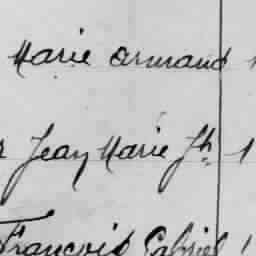 Marie Armand 1
Jean Marie Jh 1
François Gabriel 1